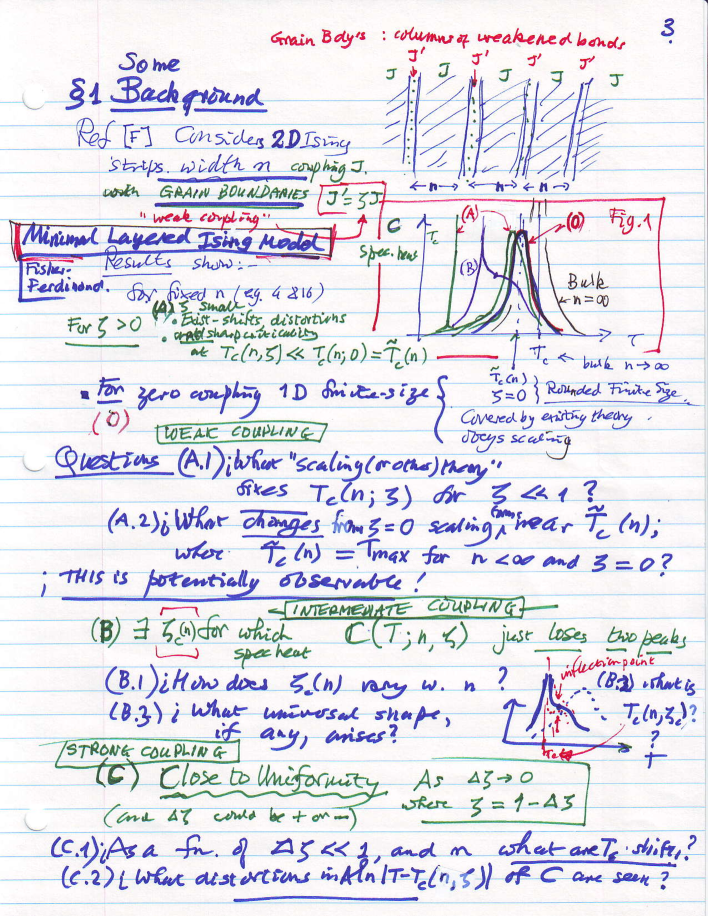 3.
Grain Bdy's : columns of weakened bonds
J J' J J' J J' J J' J
Some
§1 Background
Ref [F] Considers 2D Ising
strips width n coupling J.
with GRAIN BOUNDARIES
J' = ζJ
n n n
"weak coupling"
Minimal Layered Ising Model
Fisher-
Ferdinand.
Results show:-
for fixed n (eg. 4 & 16)
For ζ > 0
(A) ζ small
• Exist-shifts, distortions
• sharp criticality
at Tc(n,ζ) ≪ Tc(n;0) = T̃c(n)
Fig. 1
C
spec. heat
Tc
(A)
(0)
(B)
Bulk
n=∞
T
Tc ← bulk n→∞
T̃c(n)
ζ=0
Rounded Finite Size
• For zero coupling 1D finite-size
(0)
Covered by existing theory.
obeys scaling
WEAK COUPLING
Questions (A.1) ¿What "scaling (or other) theory"
fixes Tc(n;ζ) for ζ ≪ 1 ?
(A.2) ¿What changes from ζ=0 scaling forms near T̃c(n);
where T̃c(n) = Tmax for n<∞ and ζ = 0?
¡ THIS is potentially observable!
INTERMEDIATE COUPLING
(B) ∃ ζc(n) for which C(T; n, ζ) just loses two peaks
spec heat
inflection point
(B.1) ¿How does ζc(n) vary w. n ?
(B.2) what is
Tc(n,ζc)?
(B.3) ¿ What universal shape,
if any, arises?
?
T
STRONG COUPLING
(C) Close to Uniformity As Δζ→0
(and Δζ could be + or −) where ζ = 1-Δζ
(C.1) ¿As a fn. of Δζ ≪ 1, and n what are Tc shifts?
(C.2) ¿What distortions in A ln|T-Tc(n,ζ)| of C are seen?